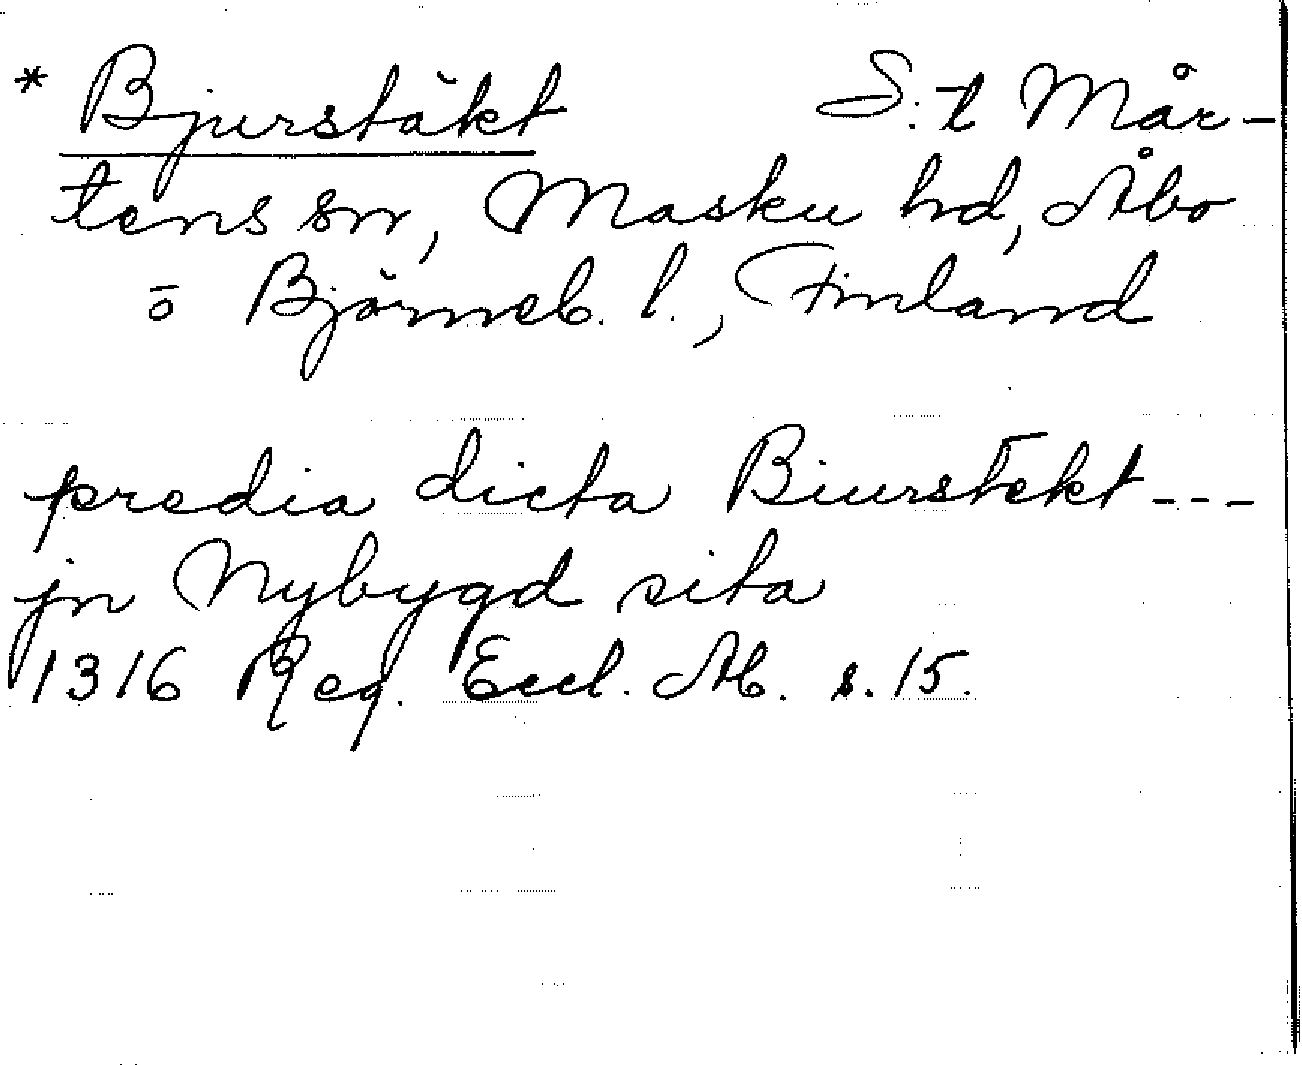 * Bjurstäkt S:t Mår-
tens sn, Masku hd, Åbo
o Björneb. l., Finland
predia dicta Biurstekt ---
jn Nybygd sita
1316 Reg. Eccl. Ab. s. 15.